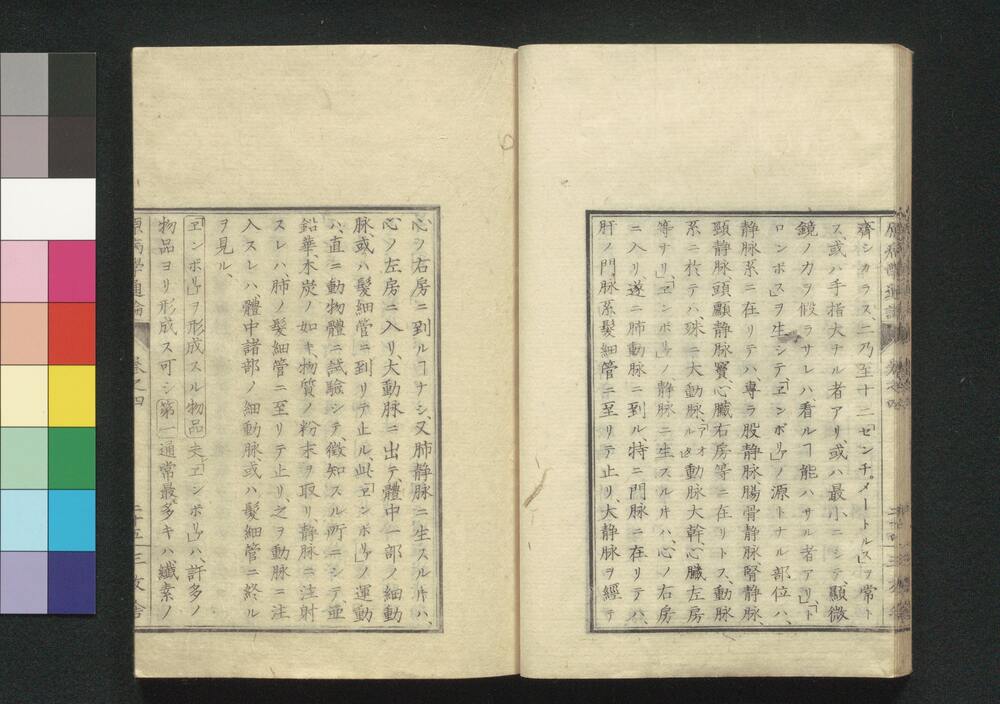 齊シカラス、二乃至十二「センチメートルス」ヲ常ト
ス或ハ手指大ナル者アリ或ハ最小ニシテ、顯微
鏡ノ力ヲ假ラサレハ、看ルヿ能ハサル者アリ、「ト
ロンボス」ヲ生シテ、「ヱンボリ」ノ源トナル部位ハ、
静脉系ニ在リテハ、專ラ股静脉、腸骨静脉、腎静脉、
頸静脉、頭顱静脉竇、心臓右房等ニ在リトス、動脉
系ニ於テハ、殊ニ大動脉、動脉大幹、心臓左房
等ナリ、「ヱンボリ」ノ静脉ニ生スル片ハ、心ノ右房
ニ入リ遂ニ肺動脉ニ到ル、特ニ門脉ニ在リテハ、
肝ノ門脉系髪細管ニ至リテ止リ、大静脉ヲ經テ
心ノ右房ニ到ルヿナシ、又肺静脉ニ生スル片ハ、
心ノ左房ニ入リ、大動脉ニ出テ、體中一部ノ細動
脉、或ハ髪細管ニ到リテ止ル、此「ヱンボリ」ノ運動
ハ、直ニ動物體ニ試驗シテ、徴知スル所ニシテ、亜
鉛華、木炭ノ如キ、物質ノ粉末ヲ取リ、静脉ニ注射
スレハ、肺ノ髪細管ニ至リテ止リ、之ヲ動脉ニ注
入スレハ、體中諸部ノ細動脉、或ハ髪細管ニ終ル
ヲ見ル、
「ヱンボリ」ヲ形成スル物品 夫「ヱンボリ」ハ、許多ノ
物品ヨリ形成ス可シ 第一 通常最多キハ、纖素ノ
原病學通論 卷之四 二十五 三友舎